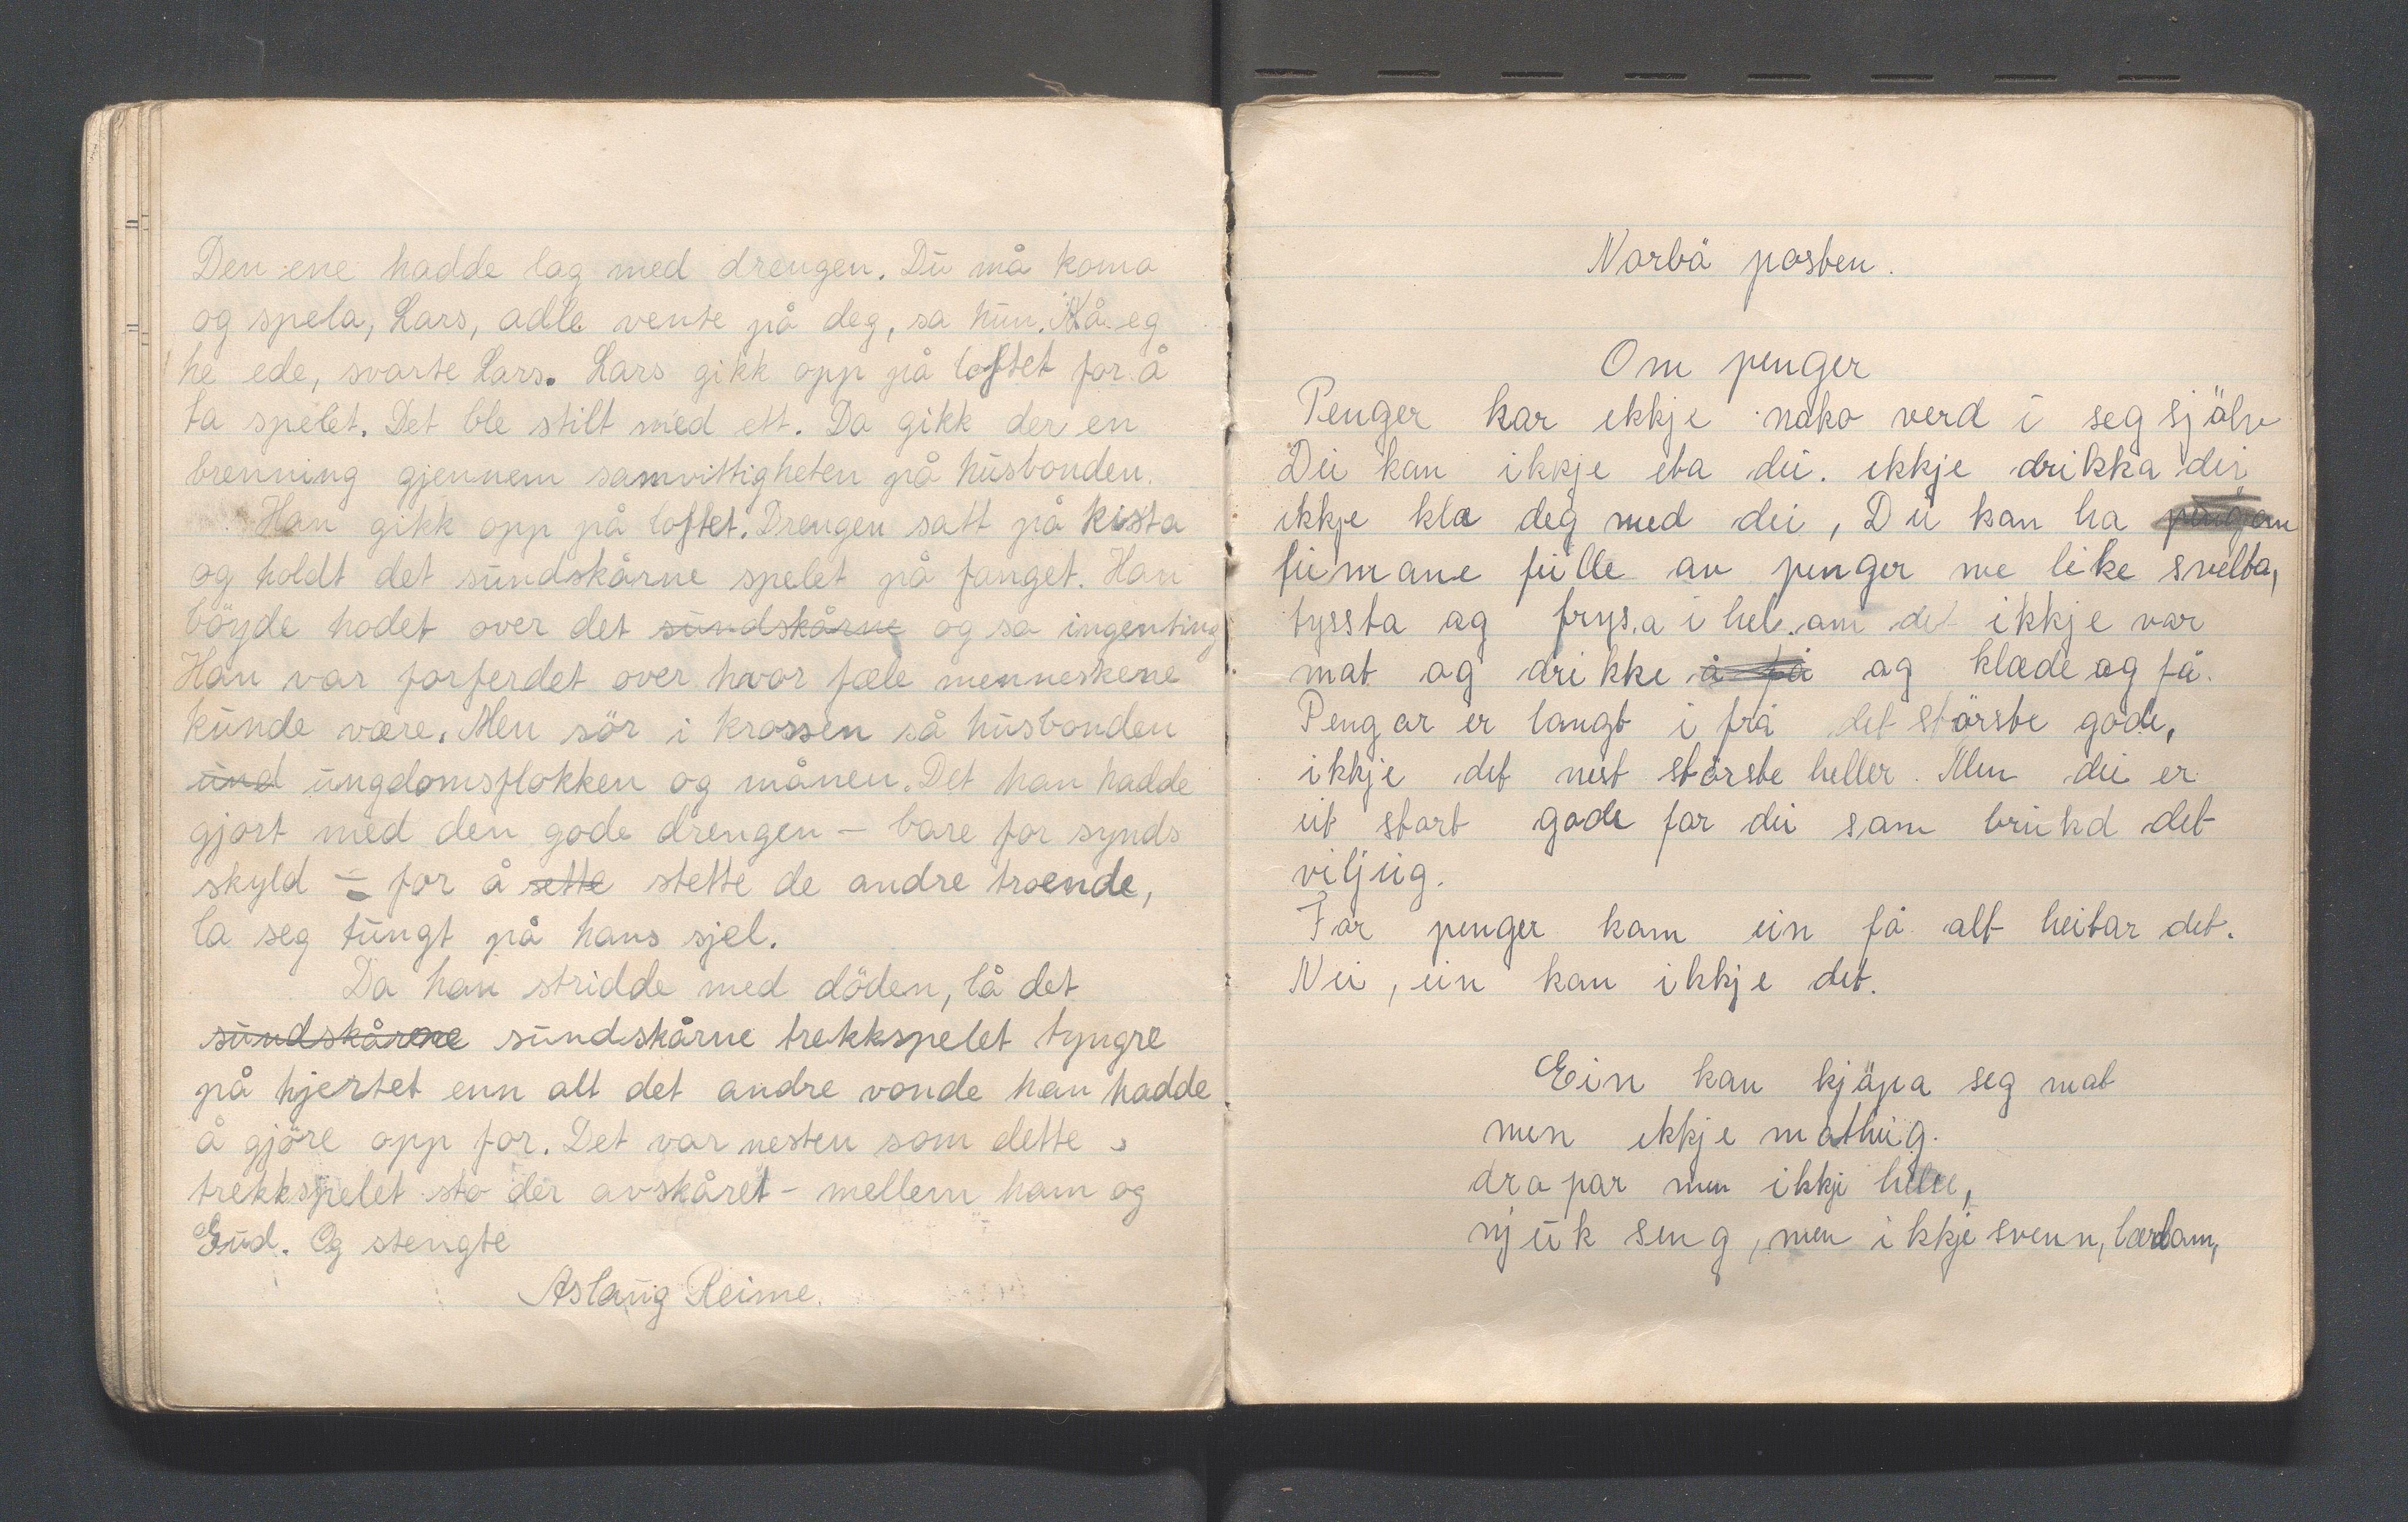 Den ene hadde lag med drengen. Du må koma
og spela, Lars, adle vente på deg, sa hun. Nå eg
he ede, svarte Lars. Lars gikk opp på loftet for å
ta spelet. Det ble stilt med ett. Da gikk der en
brenning gjennem samvittigheten på husbonden.
Han gikk opp på loftet. Drengen satt på kista
og holdt det sundskårne spelet på fanget. Han
böyde hodet over det sundskårne og sa ingenting
Han var forferdet over hvor fæle menneskene
kunde være. Men sör i krossen så husbonden
und ungdomsflokken og månen. Det han hadde
gjort med den gode drengen - bare for synds
skyld - for å sette stette de andre troende,
la seg tungt på hans sjel.
Da han stridde med döden, lå det
sundskårene sundskårne trekkspelet tyngre
på hjertet enn alt det andre vonde han hadde
å gjöre opp for. Det var nesten som dette
trekkspelet sto der avskåret - mellem ham og
Gud. Og stengte
Aslaug Reime.
Narbö posten.
Om penger
Penger har ikkje noko verd i seg sjölv
Dei kan ikkje eta dei. ikkje drikka dei
ikkje kla deg med dei, Du kan ha
fumane fulle av penger me like svelta,
tyssta og frysa i hel. om det ikkje var
mat og drikke å få og klæde og få.
Pengar er langt i frå det störste gode,
ikkje det nest störste heller. Men dei er
eit stort gode for dei som brukd det
viljug.
For penger kam ein få alt heitar det.
Nei, ein kan ikkje det.
Ein kan kjöpa seg mat
men ikkje mathug.
dropar men ikkje helse,
mjuk seng, men ikkje svevn, lærdom,